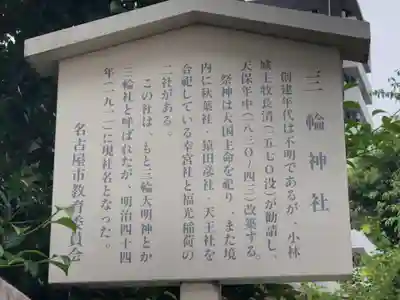 三輪神社
創建年代は不明であるが、小林
城主牧長清（一五七〇没）が勧請し、
天保年中（一八三〇〜四三）改築する。
祭神は大国主命を祀り、また境
内に秋葉社・猿田彦社・天王社を
合祀している幸宮社と福光稲荷の
二社がある。
この社は、もと三輪大明神とか
三輪社と呼ばれたが、明治四十四
年（一九一一）に現社名となった。
名古屋市教育委員会